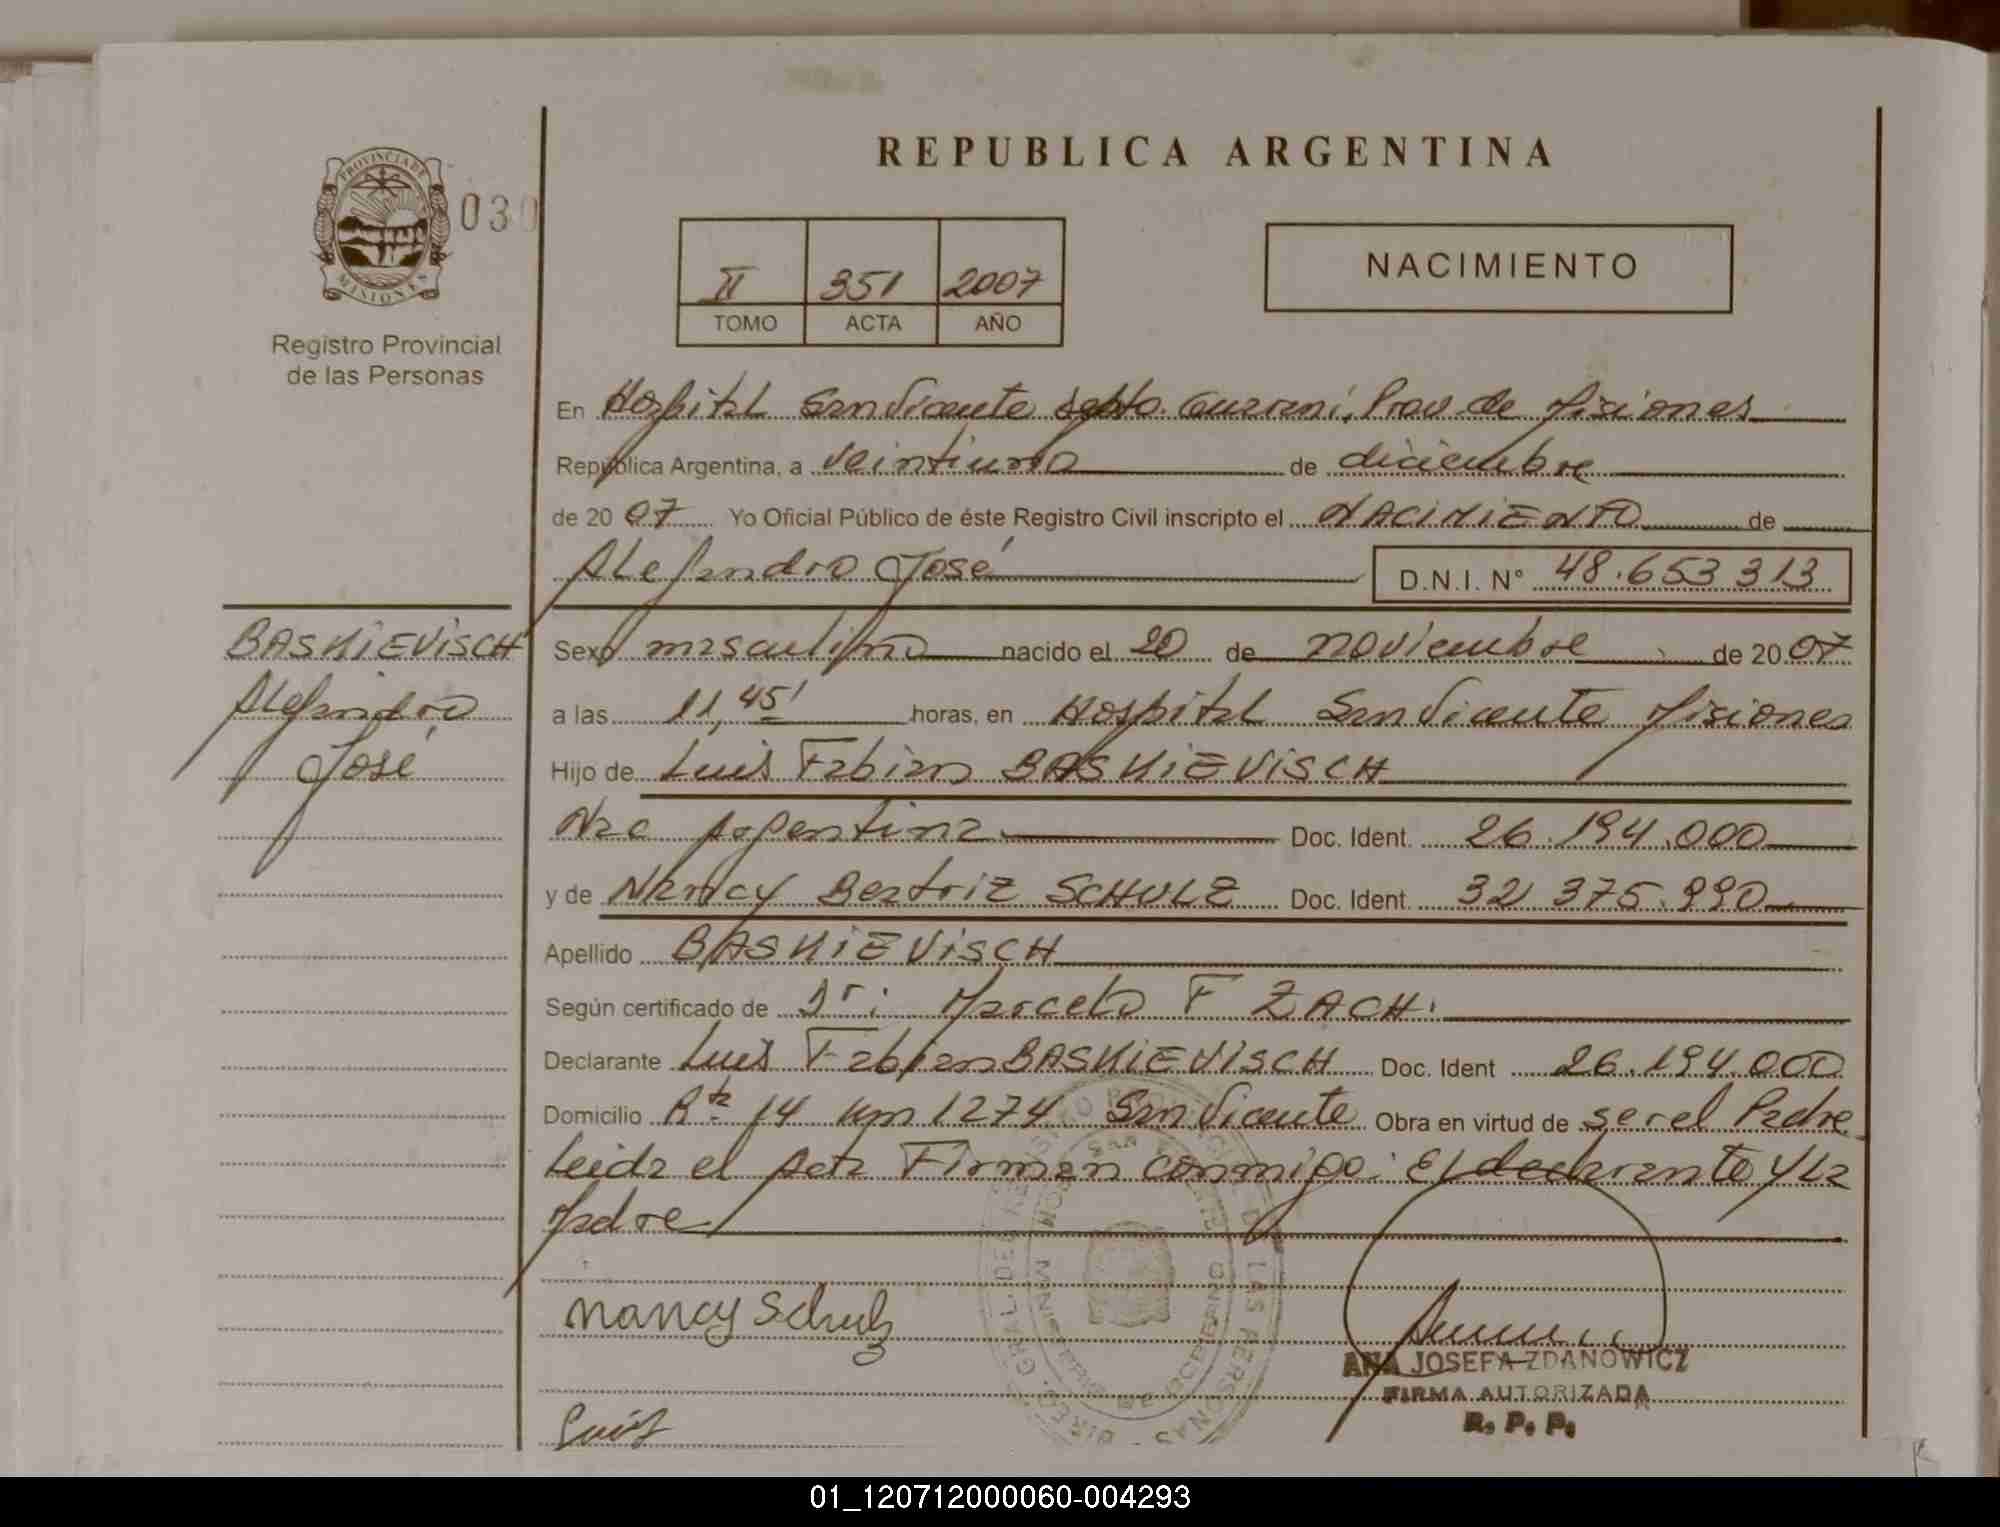 REPUBLICA ARGENTINA
PROVINCIA DE
MISIONES
030
Registro Provincial
de las Personas
II 351 2007
TOMO ACTA AÑO
NACIMIENTO
En Hospital San Vicente Dpto. Guaraní, Prov de Misiones
República Argentina, a veintiuno de diciembre
de 20 07 Yo Oficial Público de éste Registro Civil inscripto el NACIMIENTO de
Alejandro José D.N.I. N° 48.653 313
BASKIEVISCH
Alejandro
José
Sexo masculino nacido el 20 de noviembre de 20 07
a las 11,45' horas, en Hospital San Vicente Misiones
Hijo de Luis Fabian BASKIEVISCH
Nac Argentina Doc. Ident. 26.194.000
y de Nancy Beatriz SCHULZ Doc. Ident. 32 375.990
Apellido BASKIEVISCH
Según certificado de Dr: Marcelo F ZACH.
Declarante Luis Fabian BASKIEVISCH Doc. Ident 26.194.000
Domicilio Rta 14 km 1274 San Vicente Obra en virtud de ser el Padre
Leida el Acta Firman conmigo: El declarante y La
Madre
Nancy Schulz
ANA JOSEFA ZDANOWICZ
FIRMA AUTORIZADA
R. P. P.
Luis
01_120712000060-004293